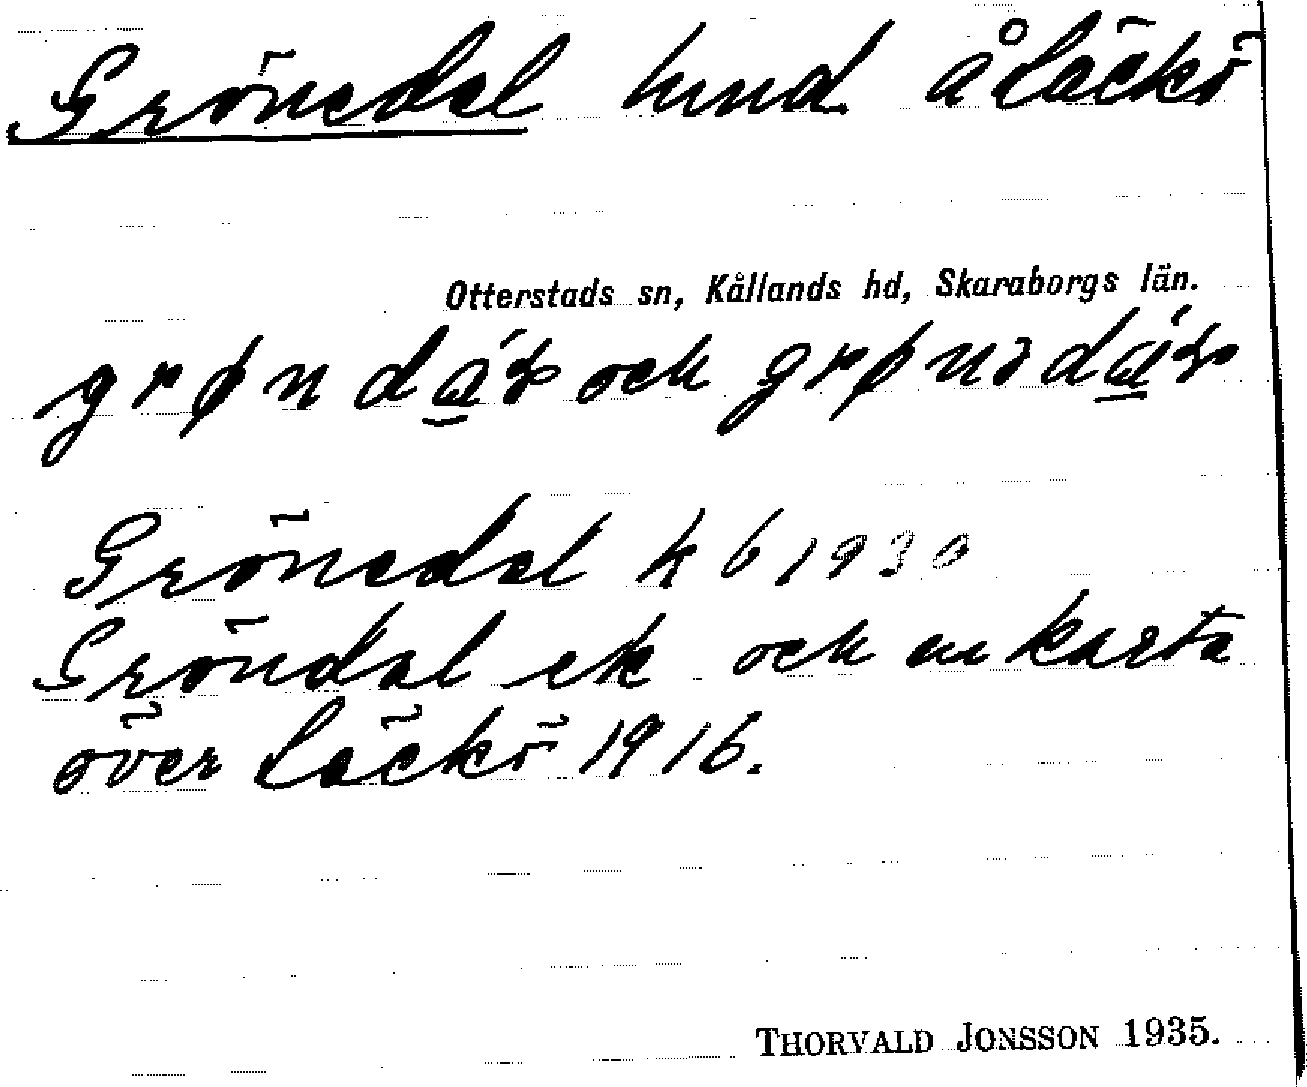 Grönedal lund å Läckö
Otterstads sn, Kållands hd, Skaraborgs län.
och
Grönedal kb 1930
Gröndal ek och en karta
över Läckö 1916.
THORVALD JONSSON 1935.